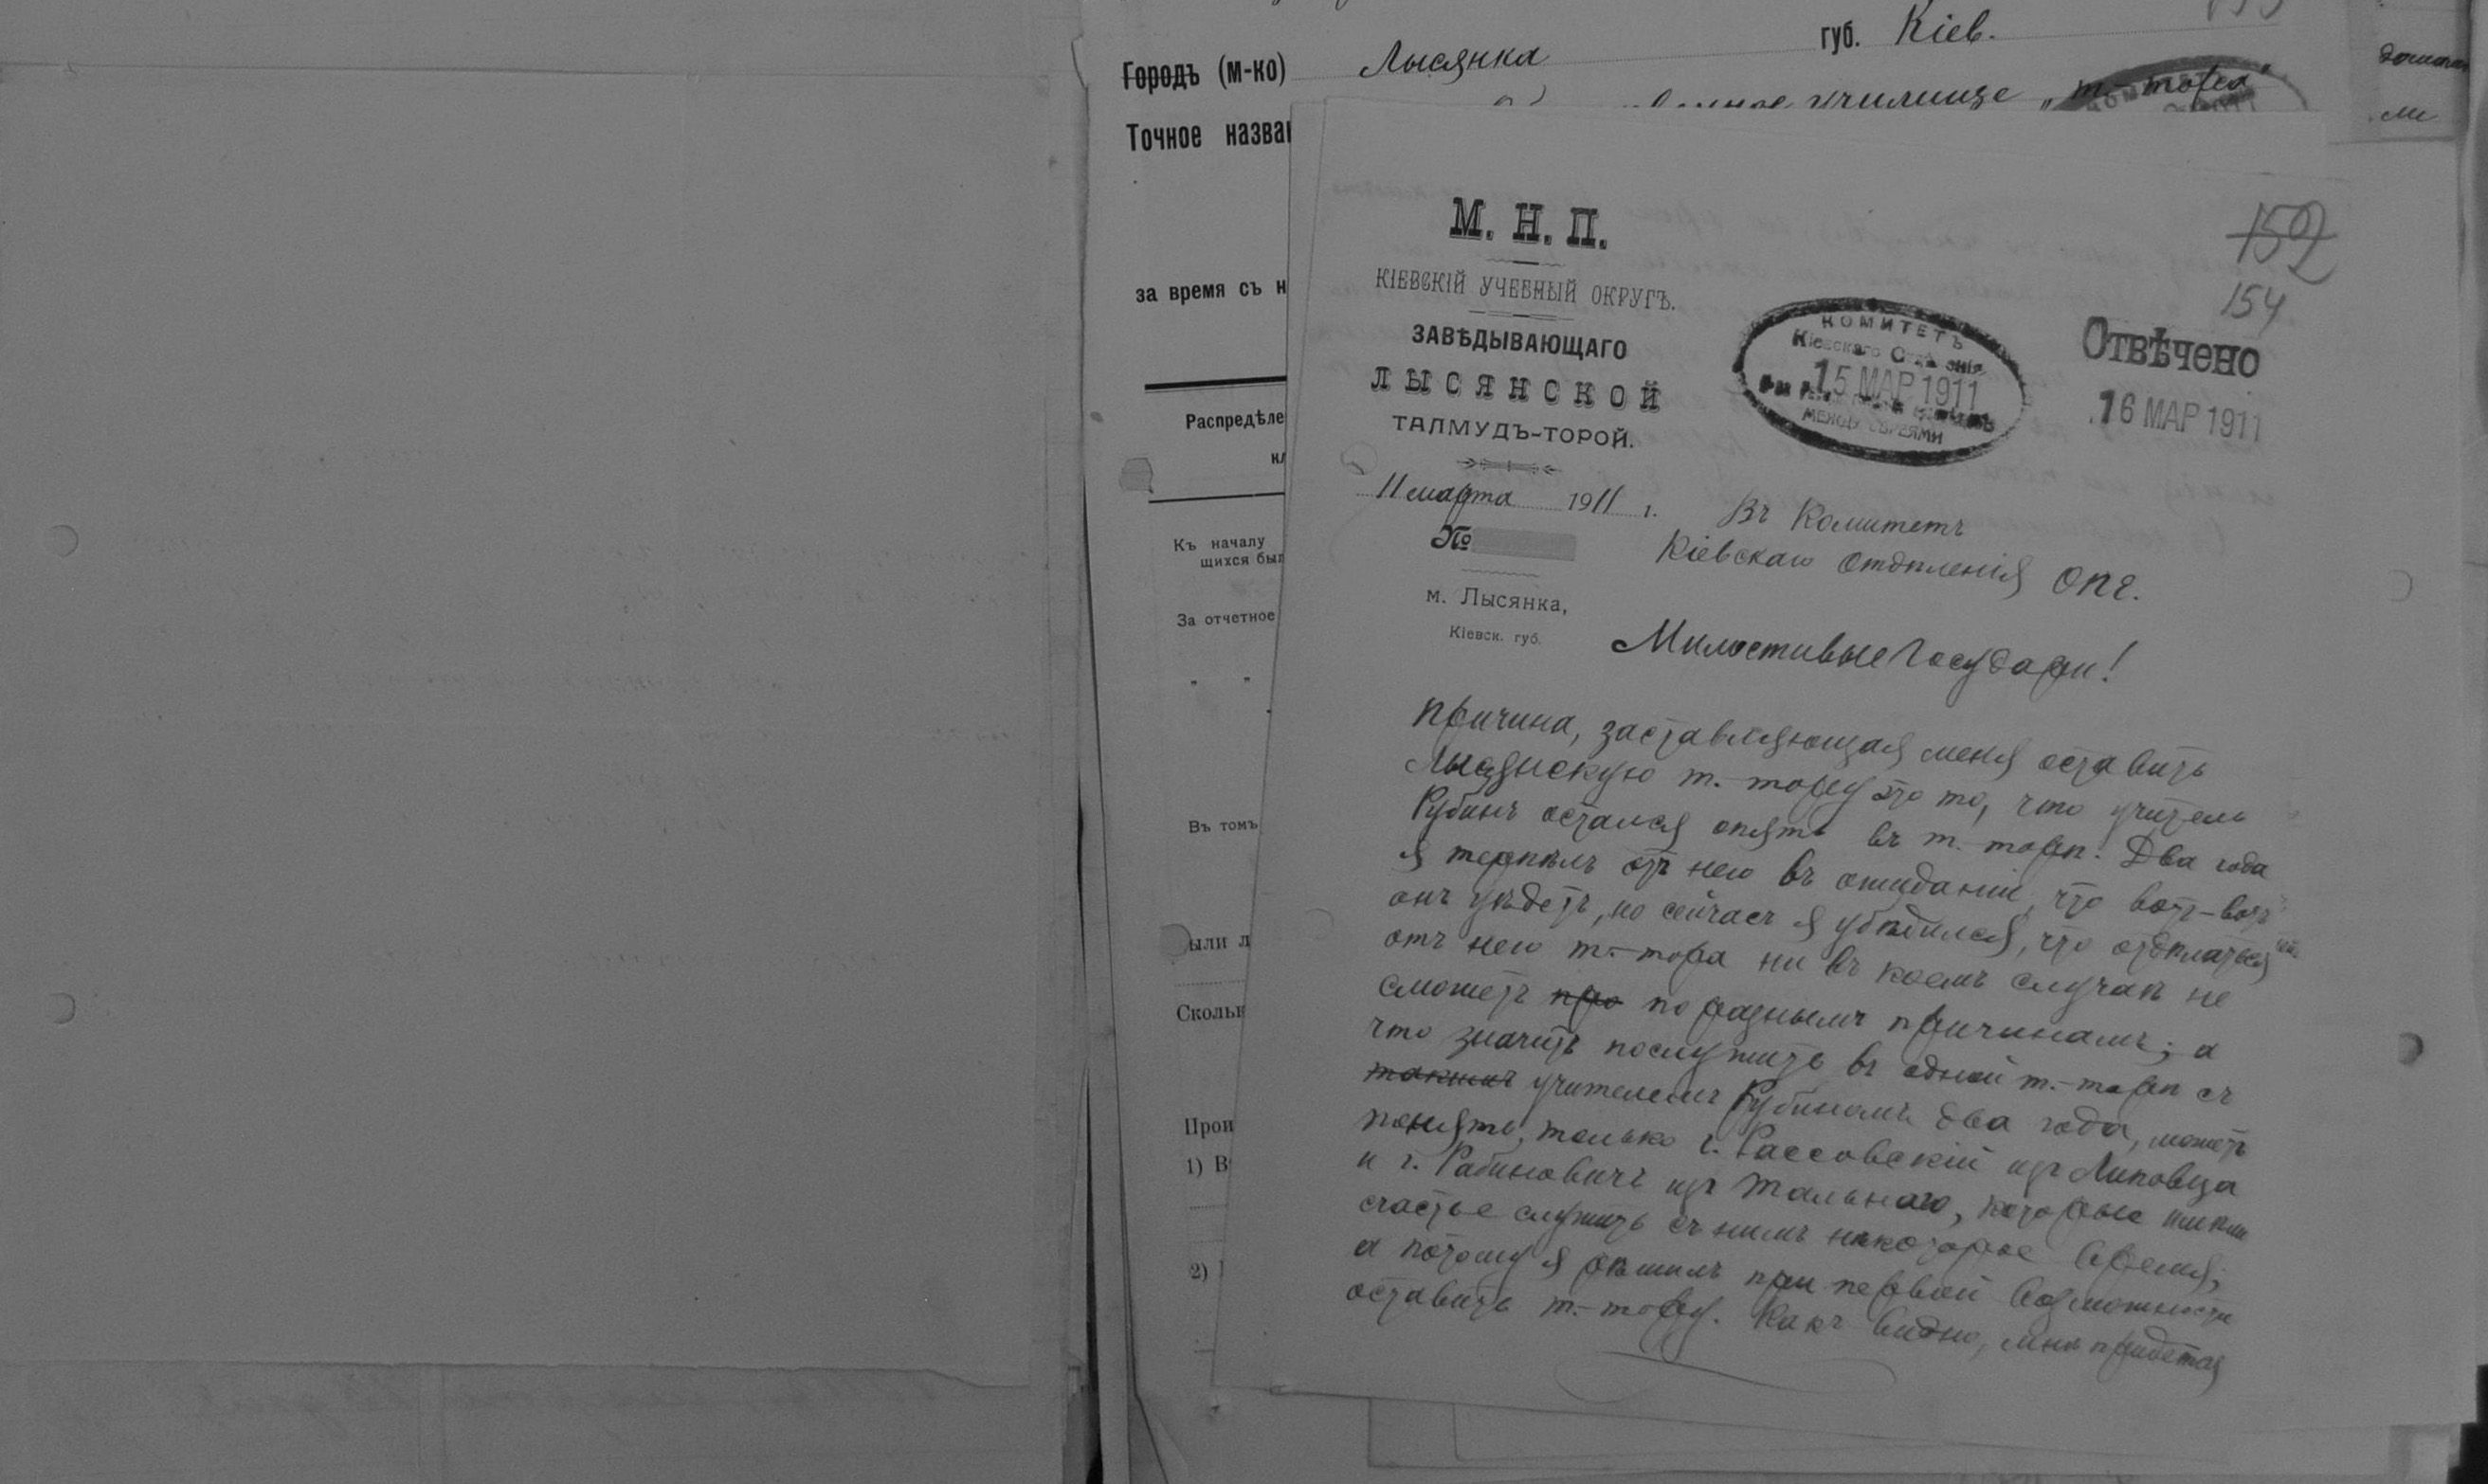 Городъ (м-ко) Лысянка губ. Кіев.
училище „т.-тора"
Точное назва
за время съ н
Распредѣле
кл
Къ началу
щихся был
За отчетное
" "
Въ томъ
ыли л
Скольк
Прои
1) В
2)
ми
152
154
М. Н. П.
КІЕВСКІЙ УЧЕБНЫЙ ОКРУГЪ.
ЗАВѢДЫВАЮЩАГО
ЛЫСЯНСКОЙ
ТАЛМУДЪ-ТОРОЙ.
11 марта 1911 г.
№
м. Лысянка,
Кіевск. губ.
КОМИТЕТЪ
Кіевскаго Отдѣленія
15 МАР 1911
МЕЖДУ ЕВРЕЯМИ
Отвѣчено
16 МАР 1911
Въ Комитетъ
Кіевскаго Отдѣленія ОПЕ.
Милостивые Государи!
Причина, заставляющая меня оставить
Лысянскую т.-тору это то, что учитель
Рубинъ остался опять въ т.-торѣ. Два года
я терпѣлъ отъ него въ ожиданіи, что вотъ-вотъ
онъ уѣдетъ, но сейчасъ я убѣдился, что отдѣлаться
отъ него т.-тора ни въ коемъ случаѣ не
сможетъ про по разнымъ причинамъ; а
что значитъ послужить въ одной т.-торѣ съ
такимъ учителемъ Рубинымъ два года, можетъ
понять, только г. Рассовскій изъ Липовца
и г. Рабиновичъ изъ Тальнаго, которые имѣли
счастье служить съ нимъ нѣкоторое время;
а потому я рѣшилъ при первой возможности
оставить т.-тору. Какъ видно, мнѣ придется